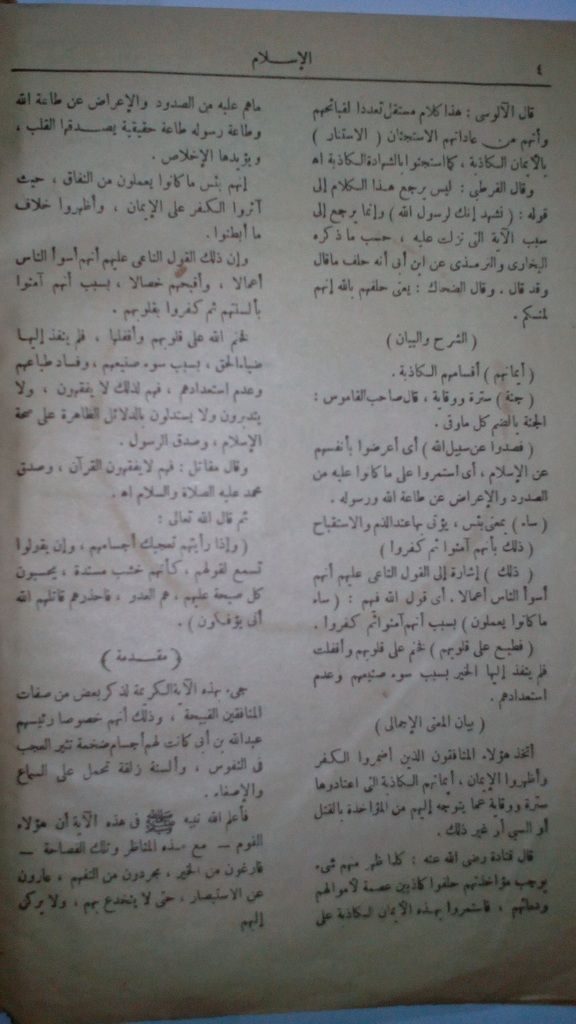 ٤
الإسلام
قال الآلوسى : هذا كلام مستقل تعددا لقبائحهم
وأنهم من عاداتهم الاستجنان ( الاستتار )
بالأيمان الكاذبة ، كما استجنوا بالشهادة الكاذبة اه
وقال القرطبى : ليس يرجع هذا الكلام إلى
قوله : ( نشهد إنك لرسول الله ) وإنما يرجع إلى
سبب الآية التى نزلت عليه ، حسب ما ذكره
البخارى والترمذى عن ابن أبى أنه حلف ماقال
وقد قال . وقال الضحاك : يعنى حلفهم بالله إنهم
لمنكم .
( الشرح والبيان )
( أيمانهم ) أقسامهم الكاذبة .
( جنة ) سترة ووقاية ، قال صاحب القاموس :
الجنة بالضم كل ماوقى .
( فصدوا عن سبيل الله ) أى أعرضوا بأنفسهم
عن الإسلام ، أى استمروا على ما كانوا عليه من
الصدود والإعراض عن طاعة الله ورسوله .
( ساء ) بمعنى بئس ، يؤتى بها عند الذم والاستقباح
( ذلك بأنهم آمنوا ثم كفروا )
( ذلك ) إشارة إلى القول الناعى عليهم أنهم
أسوأ الناس أعمالا . أى قول الله فيهم : ( ساء
ما كانوا يعملون ) بسبب أنهم آمنوا ثم كفروا .
( فطبع على قلوبهم ) فختم على قلوبهم وأقفلت
فلم ينفذ إليها الخير بسبب سوء صنيعهم وعدم
استعدادهم .
( بيان المعنى الإجمالى )
أتخذ هؤلاء المنافقون الذين أضمروا الكفر
وأظهروا الإيمان ، أيمانهم الكاذبة التى اعتادوها
سترة ووقاية عما يتوجه إليهم من المؤاخذة بالقتل
أو السبى أو غير ذلك .
قال قتادة رضى الله عنه : كلما ظهر منهم شىء
يوجب مؤاخذتهم حلفوا كاذبين عصمة لأموالهم
ودمائهم ، فاستمروا بهذه الأيمان الكاذبة على
ماهم عليه من الصدود والإعراض عن طاعة الله
وطاعة رسوله طاعة حقيقية يصدقها القلب ،
ويؤيدها الإخلاص .
إنهم بئس ما كانوا يعملون من النفاق ، حيث
آثروا الكفر على الإيمان ، وأظهروا خلاف
ما أبطنوا .
وإن ذلك القول الناعى عليهم أنهم أسوأ الناس
أعمالا ، وأقبحهم خصالا ، بسبب أنهم آمنوا
بألسنتهم ثم كفروا بقلوبهم .
فختم الله على قلوبهم وأقفلها ، فلم ينفذ إليها
ضياء الحق ، بسبب سوء صنيعهم ، وفساد طباعهم
وعدم استعدادهم ، فهم لذلك لا يفقهون ، ولا
يتدبرون ولا يستدلون بالدلائل الظاهرة على صحة
الإسلام ، وصدق الرسول .
وقال مقاتل : فهم لايفقهون القرآن ، وصدق
محمد عليه الصلاة والسلام اه .
ثم قال الله تعالى :
( وإذا رأيتهم تعجبك أجسامهم ، وإن يقولوا
تسمع لقولهم ، كأنهم خشب مسندة ، يحسبون
كل صيحة عليهم ، هم العدو ، فاحذرهم قاتلهم الله
أنى يؤفكون ) .
( مقدمة )
جىء بهذه الآية الكريمة لذكر بعض من صفات
المنافقين القبيحة ، وذلك أنهم خصوصا رئيسهم
عبدالله بن أبى كانت لهم أجسام ضخمة تثير العجب
فى النفوس ، وألسنة زلقة تحمل على السماع
والإصغاء .
فأعلم الله نبيه ﷺ فى هذه الآية أن هؤلاء
القوم — مع هذه المناظر وتلك الفصاحة —
فارغون من الخير ، مجردون من التفهم ، عارون
عن الاستبصار ، حتى لا ينخدع بهم ، ولا يركن
إليهم